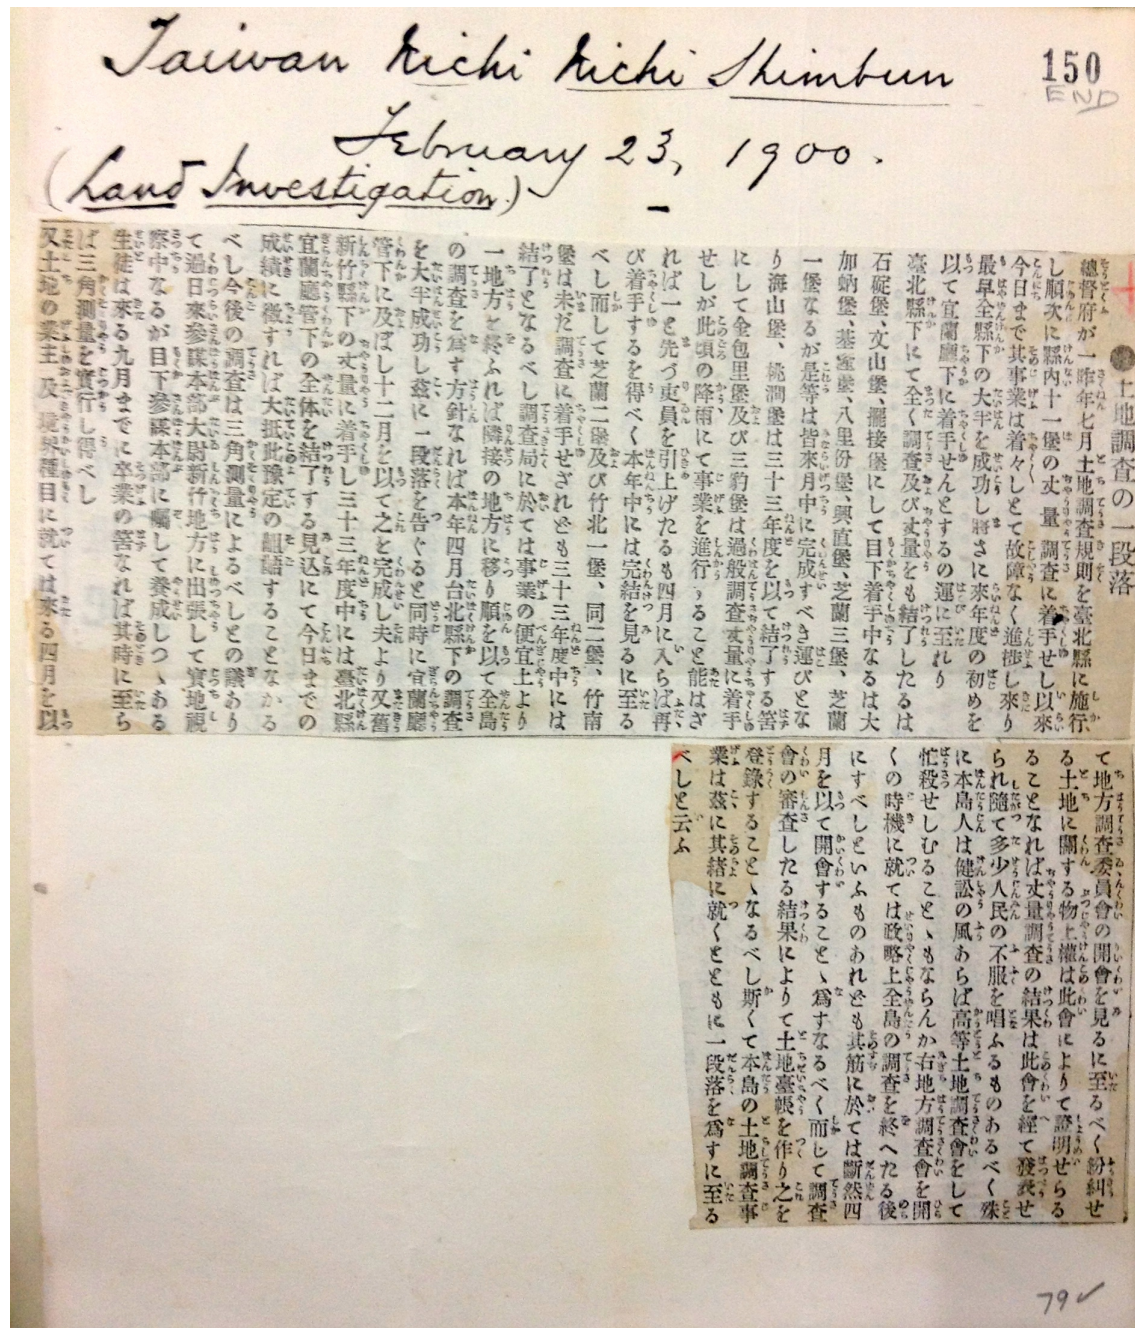 Taiwan Nichi Nichi Shimbun
150
END
February 23, 1900.
(Land Investigation)
●土地調査の一段落
總督府が一昨年七月土地調査規則を臺北縣に施行
し順次に縣内十一堡の丈量調査に着手せし以來
今日まで其事業は着々として故障なく進捗し來り
最早全縣下の大半を成功し將さに來年度の初めを
以て宜蘭廳下に着手せんとするの運に至れり
臺北縣下にて全く調査及び丈量をも結了したるは
石碇堡、文山堡、擺接堡にして目下着手中なるは大
加蚋堡、基隆堡、八里坌堡、興直堡、芝蘭三堡、芝蘭
一堡なるが是等は皆來月中に完成すべき運びとな
り海山堡、桃澗堡は三十三年度を以て結了する筈
にして金包里堡及び三貂堡は過般調査丈量に着手
せしが此頃の降雨にて事業を進行することは能はざ
れば一と先づ吏員を引上げたるも四月に入らば再
び着手するを得べく本年中には完結を見るに至る
べし而して芝蘭二堡及び竹北一堡、同二堡、竹南
堡は未だ調査に着手せざれども三十三年度中には
結了となるべし調査局に於ては事業の便宜上より
一地方を終ふれば隣接の地方に移り順を以て全島
の調査を爲す方針なれば本年四月台北縣下の調査
を大半成功し茲に一段落を告ぐると同時に宜蘭廳
管下に及ぼし十二月を以て之を完成し夫より又舊
新竹縣下の丈量に着手し三十三年度中には臺北縣
宜蘭廳管下の全体を結了する見込にて今日までの
成績に徴すれば大抵此豫定の齟齬することなかる
べし今後の調査は三角測量によるべしとの議あり
て過日來參謀本部大尉新竹地方に出張して實地視
察中なるが目下參謀本部に囑して養成しつゝある
生徒は來る九月までに卒業の筈なれば其時に至ら
ば三角測量を實行し得べし
又土地の業主及境界種目に就ては來る四月を以
て地方調査委員會の開會を見るに至るべく紛糾せ
る土地に關する物上權は此會によりて證明せらる
ることなれば丈量調査の結果は此會を經て發表せ
られ隨て多少人民の不服を唱ふるものあるべく殊
に本島人は健訟の風あらば高等土地調査會をして
忙殺せしむることゝもならんか右地方調査會を開
くの時機に就ては政略上全島の調査を終へたる後
にすべしといふものあれども其筋に於ては斷然四
月を以て開會することゝ爲すなるべく而して調査
會の審査したる結果によりて土地臺帳を作り之を
登錄することゝなるべし斯くて本島の土地調査事
業は茲に其緒に就くとともに一段落を爲すに至る
べしと云ふ
79✓